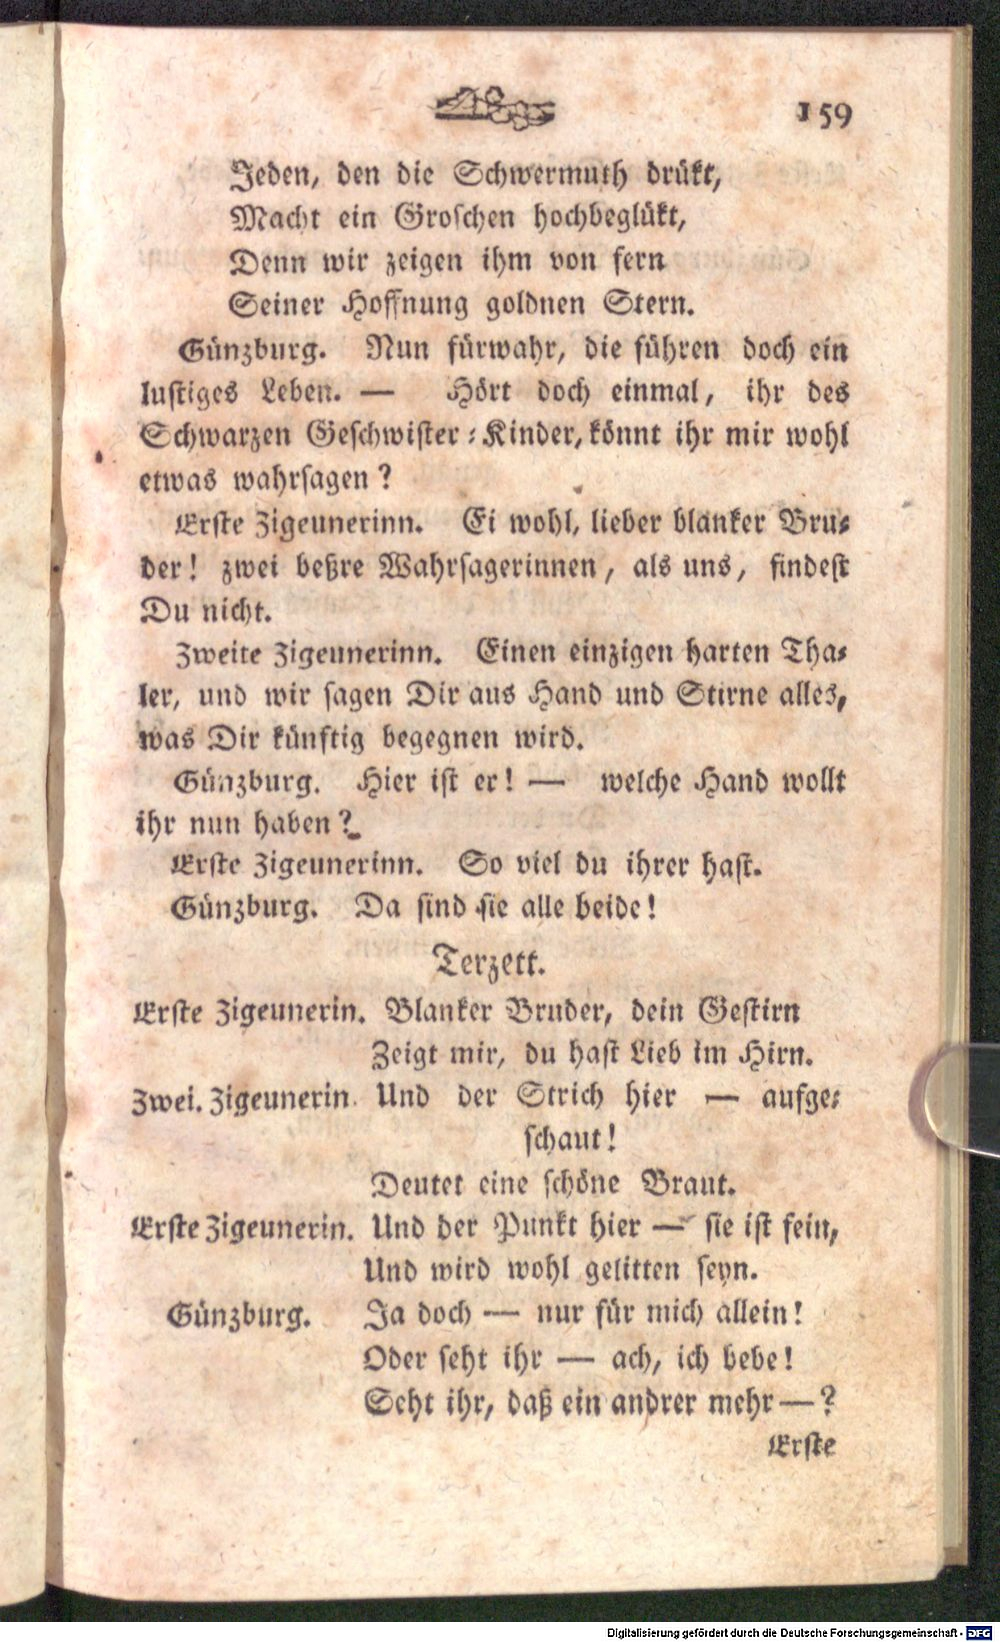 159
Jeden, den die Schwermuth drükt,
Macht ein Groschen hochbeglükt,
Denn wir zeigen ihm von fern
Seiner Hoffnung goldnen Stern.
Günzburg. Nun fürwahr, die führen doch ein
lustiges Leben. — Hört doch einmal, ihr des
Schwarzen Geschwister-Kinder, könnt ihr mir wohl
etwas wahrsagen?
Erste Zigeunerinn. Ei wohl, lieber blanker Bru-
der! zwei beßre Wahrsagerinnen, als uns, findest
Du nicht.
Zweite Zigeunerinn. Einen einzigen harten Tha-
ler, und wir sagen Dir aus Hand und Stirne alles,
was Dir künftig begegnen wird.
Günzburg. Hier ist er! — welche Hand wollt
ihr nun haben?
Erste Zigeunerinn. So viel du ihrer hast.
Günzburg. Da sind sie alle beide!
Terzett.
Erste Zigeunerin. Blanker Bruder, dein Gestirn
Zeigt mir, du hast Lieb im Hirn.
Zwei. Zigeunerin. Und der Strich hier — aufge-
schaut!
Deutet eine schöne Braut.
Erste Zigeunerin. Und der Punkt hier — sie ist fein,
Und wird wohl gelitten seyn.
Günzburg. Ja doch — nur für mich allein!
Oder seht ihr — ach, ich bebe!
Seht ihr, daß ein andrer mehr —?
Erste
Digitalisierung gefördert durch die Deutsche Forschungsgemeinschaft - DFG